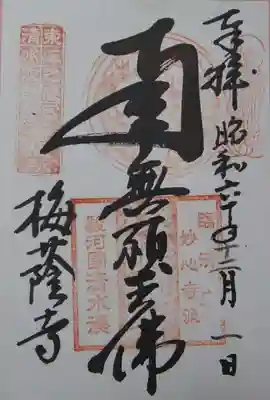 奉拝 昭和六十年十二月一日
南無願王佛
臨済宗
妙心寺派
駿河國清水湊
梅蔭寺